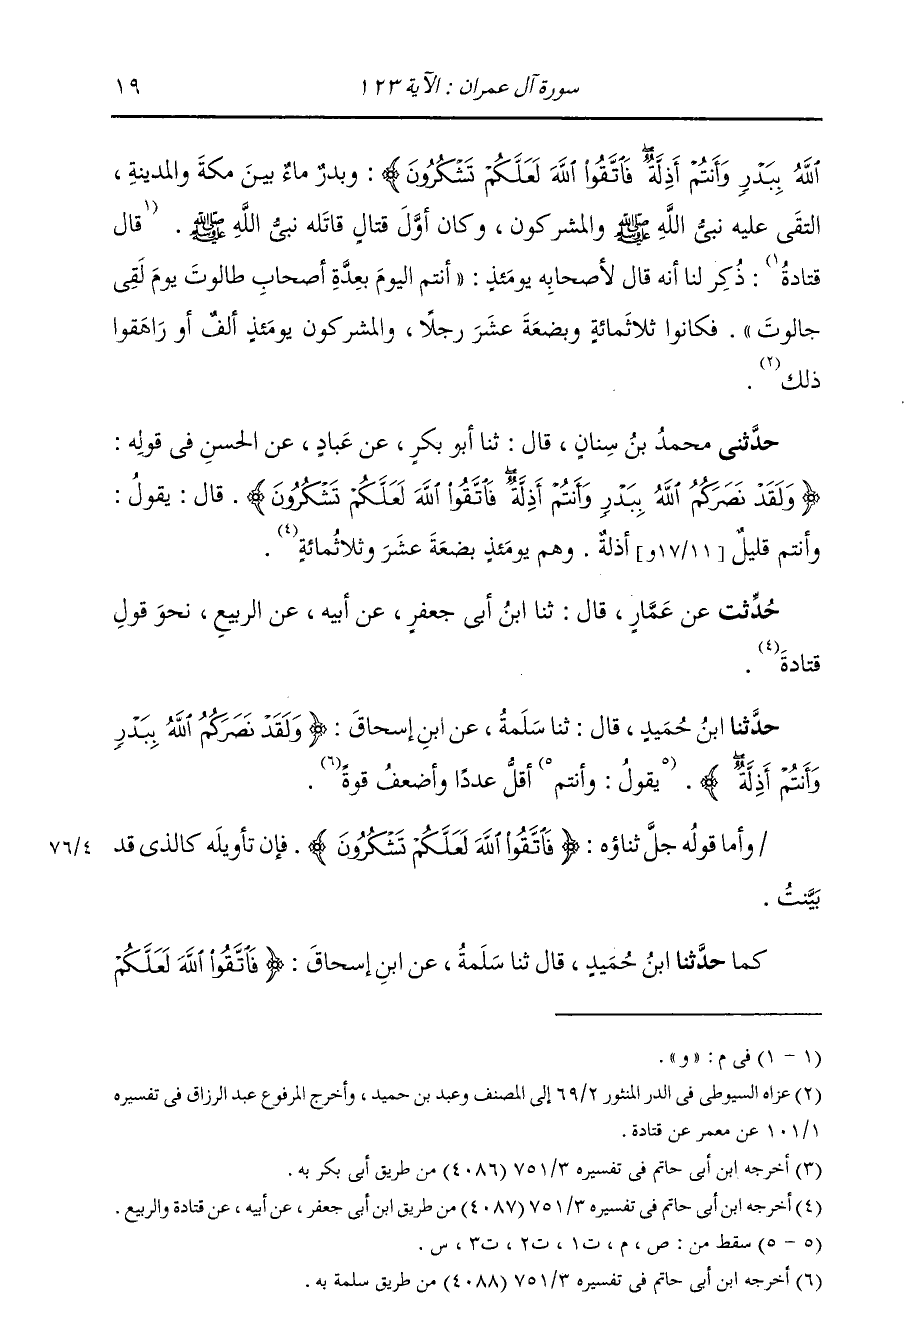 سورة آل عمران : الآية ١٢٣ ١٩
ٱللَّهُ بِبَدْرٍ وَأَنتُمْ أَذِلَّةٌ ۖ فَٱتَّقُوا۟ ٱللَّهَ لَعَلَّكُمْ تَشْكُرُونَ ﴾ : وبدرٌ ماءٌ بينَ مكةَ والمدينةِ ،
التقَى عليه نبىُّ اللَّهِ ﷺ والمشركون ، وكان أوَّلَ قتالٍ قاتَله نبىُّ اللَّهِ ﷺ . (١قال
قتادةُ١) : ذُكِر لنا أنه قال لأصحابِه يومَئذٍ : « أنتم اليومَ بعِدَّةِ أصحابِ طالوتَ يومَ لَقِى
جالوتَ » . فكانوا ثلاثَمائةٍ وبضعَةَ عشَرَ رجلًا ، والمشركون يومَئذٍ ألفٌ أو رَاهَقوا
ذلك(٢) .
حدَّثنى محمدُ بنُ سِنانٍ ، قال : ثنا أبو بكرٍ ، عن عَبادٍ ، عن الحسنِ فى قولِه :
﴿ وَلَقَدْ نَصَرَكُمُ ٱللَّهُ بِبَدْرٍ وَأَنتُمْ أَذِلَّةٌ ۖ فَٱتَّقُوا۟ ٱللَّهَ لَعَلَّكُمْ تَشْكُرُونَ ﴾ . قال : يقولُ :
وأنتم قليلٌ [١٧/١١و] أذلةٌ . وهم يومَئذٍ بضعَةَ عشَرَ وثلاثُمائةٍ(٤) .
حُدِّثت عن عَمَّارٍ ، قال : ثنا ابنُ أبى جعفرٍ ، عن أبيه ، عن الربيعِ ، نحوَ قولِ
قتادةَ(٤) .
حدَّثنا ابنُ حُمَيدٍ ، قال : ثنا سَلَمةُ ، عن ابنِ إسحاقَ : ﴿ وَلَقَدْ نَصَرَكُمُ ٱللَّهُ بِبَدْرٍ
وَأَنتُمْ أَذِلَّةٌ ۖ ﴾ . (٥يقولُ : وأنتم٥) أقلُّ عددًا وأضعفُ قوةً(٦) .
/ وأما قولُه جلَّ ثناؤه : ﴿ فَٱتَّقُوا۟ ٱللَّهَ لَعَلَّكُمْ تَشْكُرُونَ ﴾ . فإن تأويلَه كالذى قد ٧٦/٤
بَيَّنتُ .
كما حدَّثنا ابنُ حُمَيدٍ ، قال ثنا سَلَمةُ ، عن ابنِ إسحاقَ : ﴿ فَٱتَّقُوا۟ ٱللَّهَ لَعَلَّكُمْ
(١ - ١) فى م : « و » .
(٢) عزاه السيوطى فى الدر المنثور ٦٩/٢ إلى المصنف وعبد بن حميد ، وأخرج المرفوع عبد الرزاق فى تفسيره
١٠١/١ عن معمر عن قتادة .
(٣) أخرجه ابن أبى حاتم فى تفسيره ٧٥١/٣ (٤٠٨٦) من طريق أبى بكر به .
(٤) أخرجه ابن أبى حاتم فى تفسيره ٧٥١/٣ (٤٠٨٧) من طريق ابن أبى جعفر ، عن أبيه ، عن قتادة والربيع .
(٥ - ٥) سقط من : ص ، م ، ت١ ، ت٢ ، ت٣ ، س .
(٦) أخرجه ابن أبى حاتم فى تفسيره ٧٥١/٣ (٤٠٨٨) من طريق سلمة به .